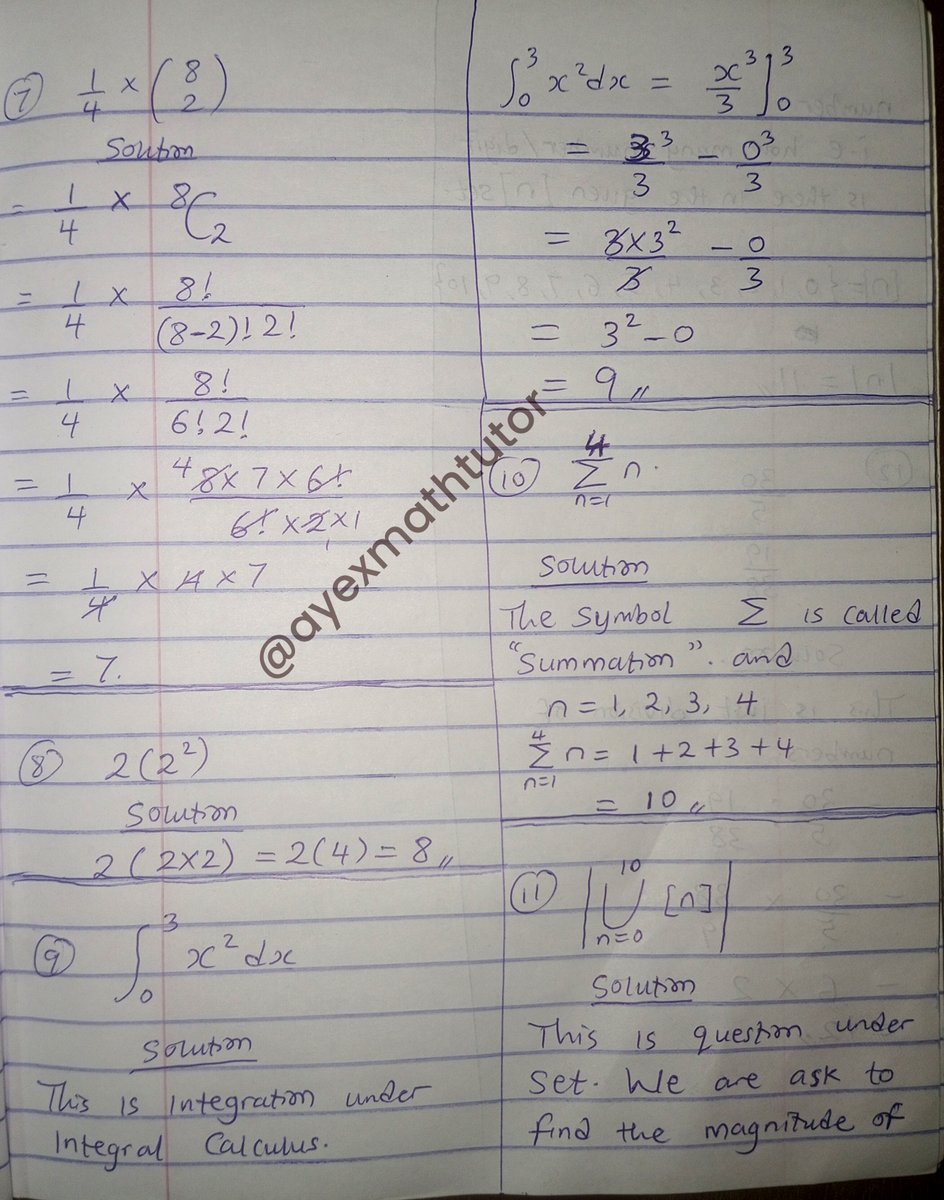 ⑦ 1/4 × (8 2)
Solution
= 1/4 × 8C2
= 1/4 × 8!/(8-2)!2!
= 1/4 × 8!/6!2!
= 1/4 × 4 8×7×6!/6!×2×1
= 1/4 × 4 × 7
= 7.
⑧ 2(2²)
Solution
2(2×2) = 2(4) = 8,,
⑨ ∫₀³ x² dx
Solution
This is integration under
Integral Calculus.
∫₀³ x² dx = x³/3]₀³
= 3³/3 - 0³/3
= 3×3²/3 - 0/3
= 3² - 0
= 9,,
⑩ 4 Σ n=1 n.
Solution
The symbol Σ is called
"Summation". and
n = 1, 2, 3, 4
4 Σ n=1 n = 1+2+3+4
= 10,,
⑪ |10 ⋃ n=0 [n]|
Solution
This is question under
Set. We are ask to
find the magnitude of
@ayexmathtutor